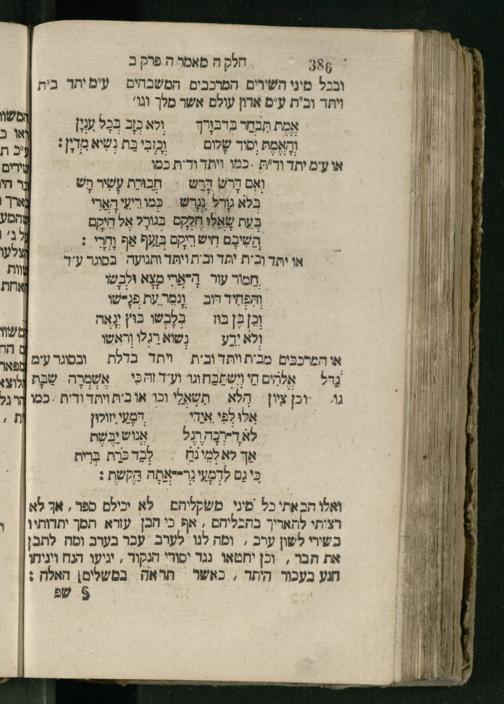 386
חלק ה מאמר ה פרק ב
ובכל מיני השירים המרכבים המשבחים ע״מ יתד ב״ת
ויתד וב״ת ע״מ אדון עולם אשר מלך וגו׳
אֱמֶת תִּבְחַר בְּדִבּוּרְךָ וְלֹא כָזָב בְּכָל עִנְיָן
וְהָאֱמֶת יְסוֹד שָׁלוֹם וְכָזְבִּי בַּת נְשִׂיא מִדְיָן :
או ע״מ יתד וד״ת כמו ויתד וד״ת כמו
וְאִם הָרֹשׁ הָרֹשׁ חֲבוּרַת עָשִׁיר
בְּלֹא גוֹרָל נִגְרָשׁ כְּמוֹ
בְּעֵת שָׁאֲלוּ חֶלְקָם בְּגוֹרָל אֶל הֵיקָם
הֱשִׁיבָם חִישׁ רֵיקָם בְּזַעַף אַף וָחֳרִי :
או יתד וב״ת יתד וב״ת ויתד ותנועה בסוגר ע״ד
חֲמוֹר עוֹר הָ־אֲרִי מָצָא וּלְבָשׁוֹ
וְהִפְחִיד דּוֹב וְנָמֵר עֵת פְּגָ־שׁוֹ
וְכֵן בֶּן בּוּז בְּלָבְשׁוֹ בוּץ יִגְאֶה
וְלֹא יֵדַע נְשׂוֹא רַגְלוֹ וְרֹאשׁוֹ
או המרכבים מב״ת ויתד וב״ת ויתד בדלת ובסוגר ע״מ
יִגְדַּל אֱלֹהִים חַי וְיִשְׁתַּבַּח וגו׳ וע״ד זה כִּי אֶשְׁמְרָה שַׁבָּת
גו׳ . וכן צִיּוֹן הֲלֹא תִשְׁאֲלִי וכו׳ או ב״ת ויתד וד״ת . כמו
אִלּוּ לְפִי אֵידִי דִּמְעֵי יִזּוֹלוּן
לֹא דָ־רְכָה רֶגֶל אֱנוֹשׁ יַבֶּשֶׁת
אַךְ לֹא לְמֵי נֹחַ לְבַד כֹּרַת בְּרִית
כִּי גַם לְדִמְעִי נִרְ־אֲתָה הַקֶּשֶׁת :
ואלו הבאתי כל מיני משקליהם לא יכילם ספר , אך לא
רציתי להאריך בהבליהם , אף כי הבן עזרא תמך יתדותיו
בשירי לשון ערב , ומה לנו לערב עבר בערב ומה לתבן
את הבר , וכן יחטאו נגד יסודי הנקוד , יגיעו הנח ויניחו
הנע בעבור היתד , כאשר תראה במשלים האלה :
§ שפ